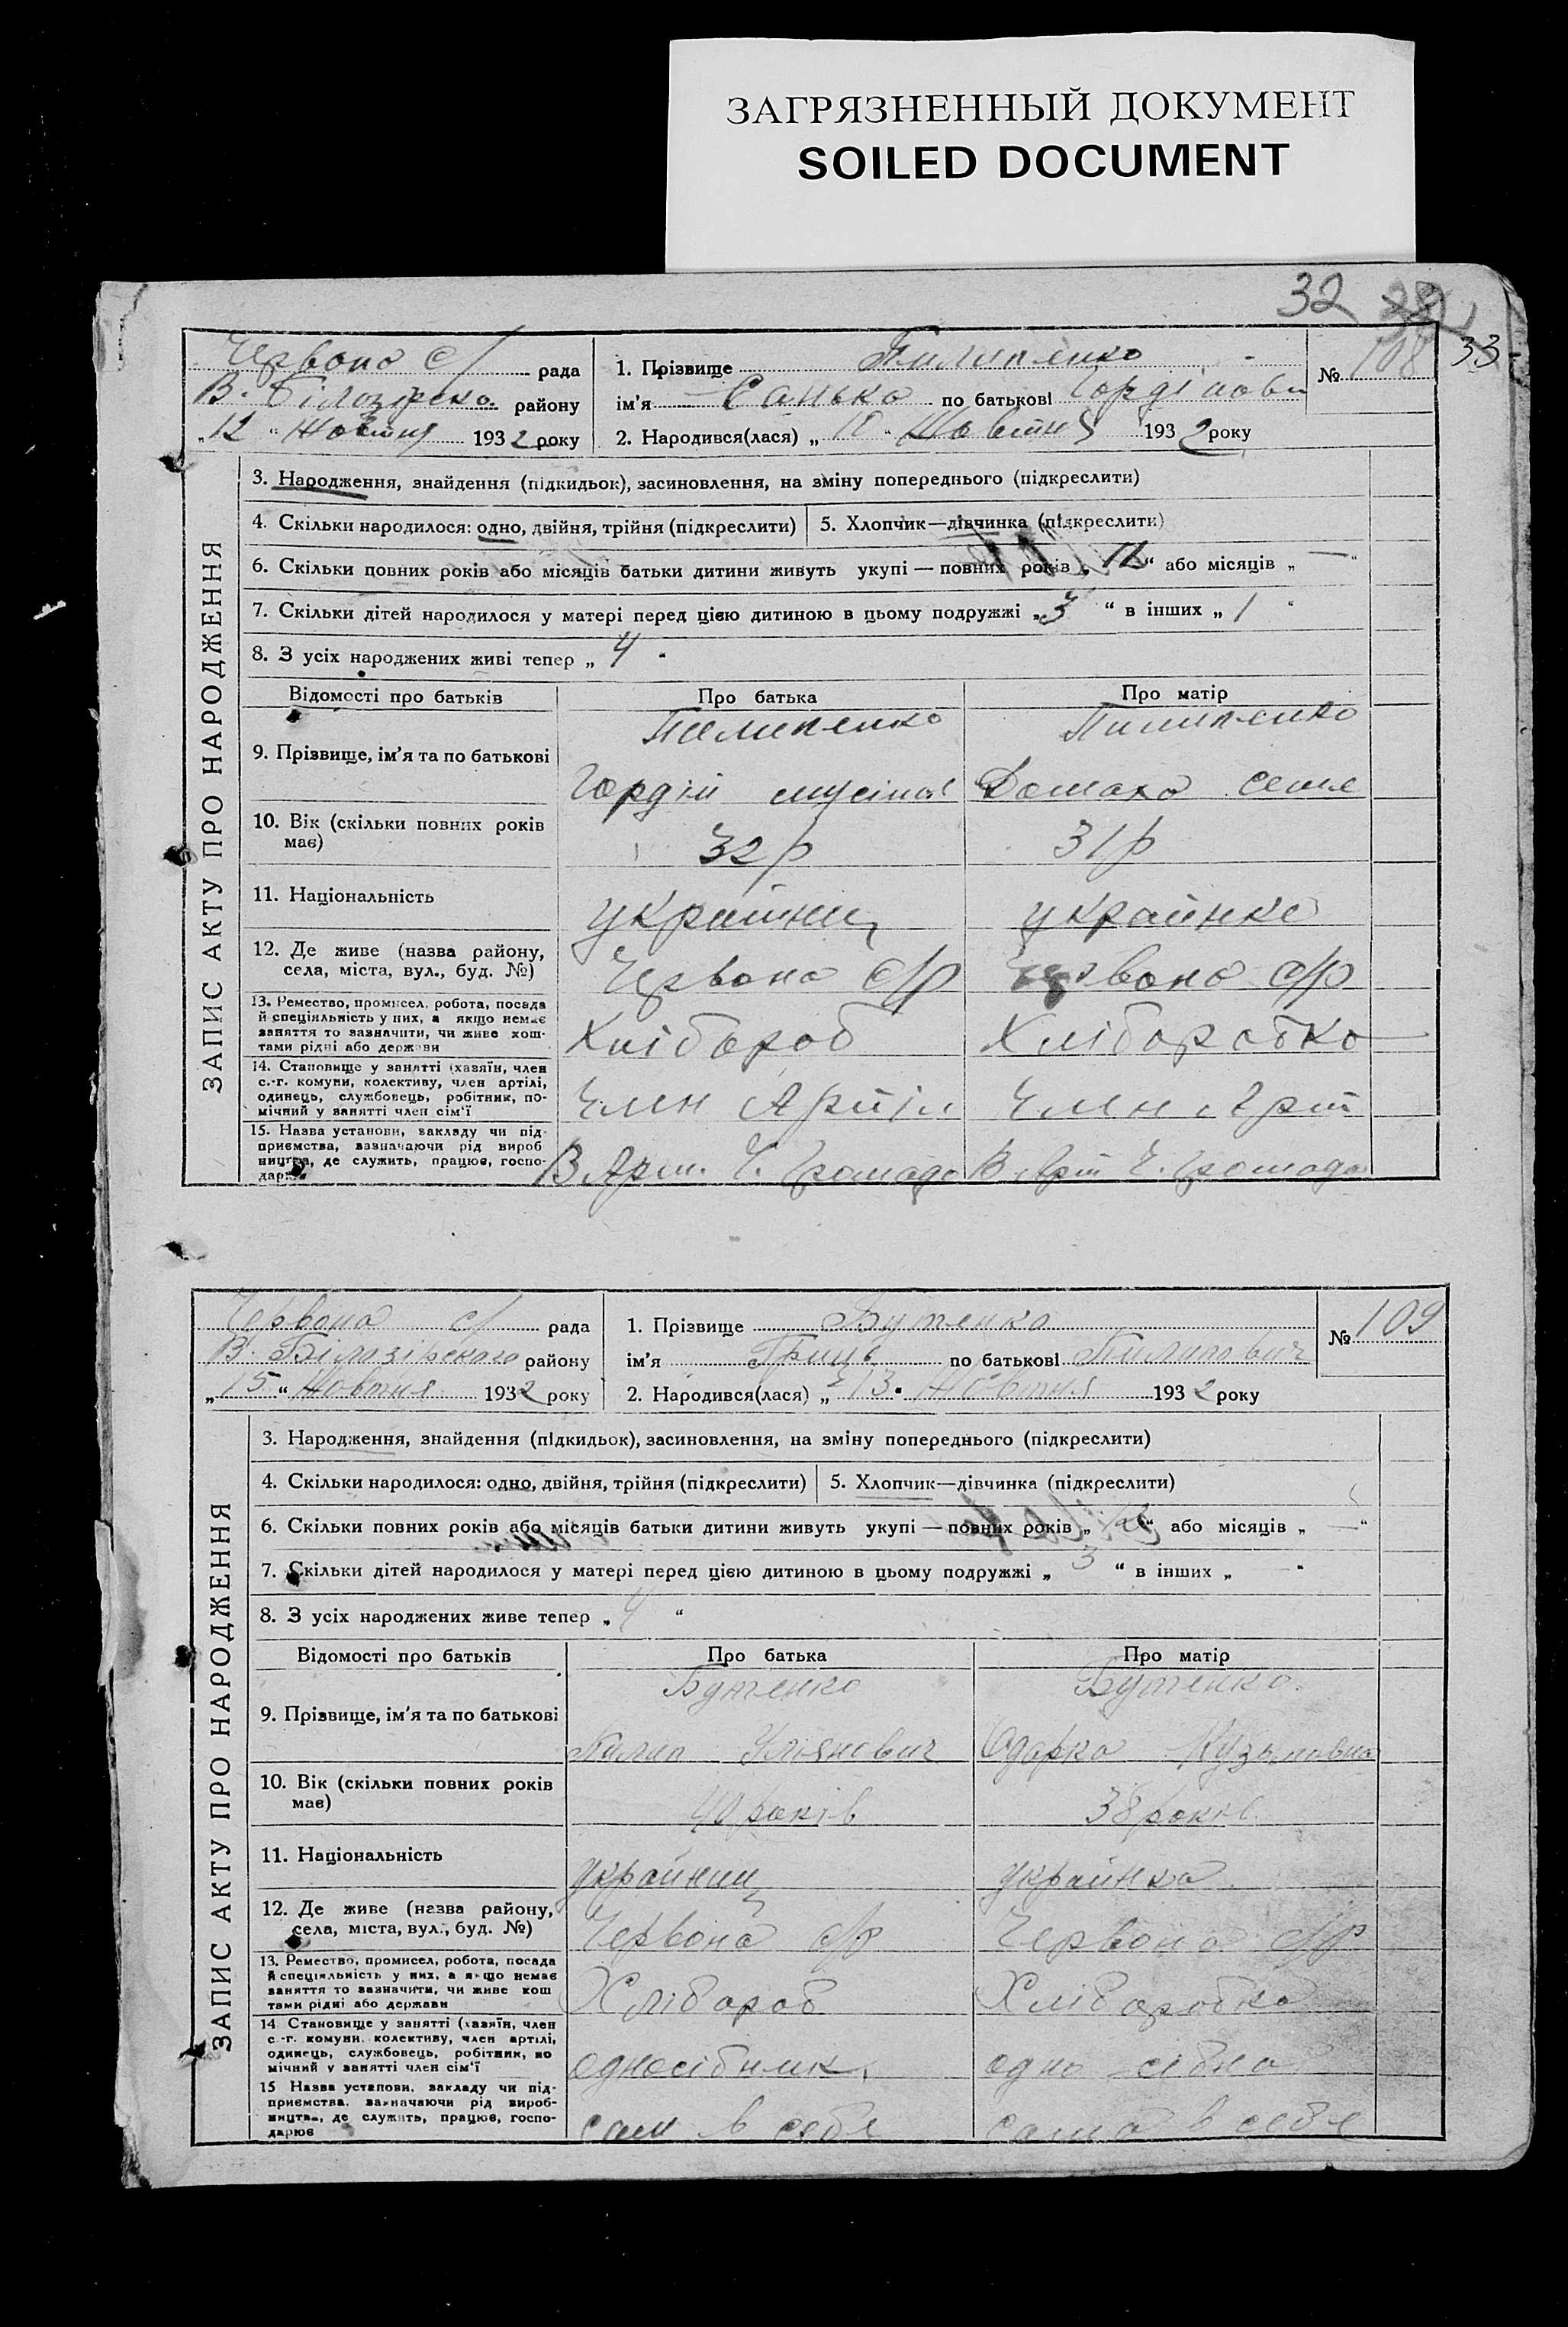 ЗАГРЯЗНЕННЫЙ ДОКУМЕНТ
SOILED DOCUMENT
32
33
Червона с/ рада
В. Білозірсько. району
„12“ Жовтня 1932 року
1. Прізвище Пилипенко
ім'я Санька по батькові
2. Народився(лася) „ “ Жовтня 1932 року
№ 108
ЗАПИС АКТУ ПРО НАРОДЖЕННЯ
3. Народження, знайдення (підкидьок), засиновлення, на зміну попереднього (підкреслити)
4. Скільки народилося: одно, двійня, трійня (підкреслити)
5. Хлопчик—дівчинка (підкреслити)
6. Скільки повних років або місяців батьки дитини живуть укупі — повних років „12“ або місяців „—“
7. Скільки дітей народилося у матері перед цією дитиною в цьому подружжі „3“ в інших „1“
8. З усіх народжених живі тепер „4“
Відомості про батьків
Про батька
Про матір
9. Прізвище, ім'я та по батькові
Пилипенко
Пилипенко
Гордій
Домаха
10. Вік (скільки повних років має)
32 р
31 р
11. Національність
українец
українка
12. Де живе (назва району, села, міста, вул., буд. №)
Червона с/р
Червона с/р
13. Ремество, промисел, робота, посада й спеціяльність у них, а якщо немає заняття то зазначити, чи живе коштами рідні або держави
Хлібороб
Хліборобка
14. Становище у занятті (хазяїн, член с.-г. комуни, колективу, член артілі, одинець, службовець, робітник, помічний у занятті член сім'ї
Член Артіл
Член Арт
15. Назва установи, закладу чи підприємства, зазначаючи рід виробництва, де служить, працює, господарює
В Арт. Ч. Громада
В Арт Ч. Громада
Червона с/ рада
В. Білозірського району
„15“ Жовтня 1932 року
1. Прізвище Бутенко
ім'я Гриць по батькові Пилипович
2. Народився(лася) „13“ Жовтня 1932 року
№ 109
ЗАПИС АКТУ ПРО НАРОДЖЕННЯ
3. Народження, знайдення (підкидьок), засиновлення, на зміну попереднього (підкреслити)
4. Скільки народилося: одно, двійня, трійня (підкреслити)
5. Хлопчик—дівчинка (підкреслити)
6. Скільки повних років або місяців батьки дитини живуть укупі — повних років „ “ або місяців „—“
7. Скільки дітей народилося у матері перед цією дитиною в цьому подружжі „3“ в інших „ “
8. З усіх народжених живе тепер „4“
Відомості про батьків
Про батька
Про матір
9. Прізвище, ім'я та по батькові
Бутенко
Бутенко.
Пилип Улянович
Одарка Кузьмівна
10. Вік (скільки повних років має)
40 років
38 років
11. Національність
українец
українка
12. Де живе (назва району, села, міста, вул., буд. №)
Червона с/р
Червона с/р
13. Ремество, промисел, робота, посада й спеціяльність у них, а якщо немає заняття то зазначити, чи живе коштами рідні або держави
Хлібороб
Хліборобка
14 Становище у занятті (хазяїн, член с.-г. комуни, колективу, член артілі, одинець, службовець, робітник, помічний у занятті член сім'ї
односібник
одно-сібна
15 Назва установи, закладу чи підприємства, зазначаючи рід виробництва, де служить, працює, господарює
сам в себе
сама в себе